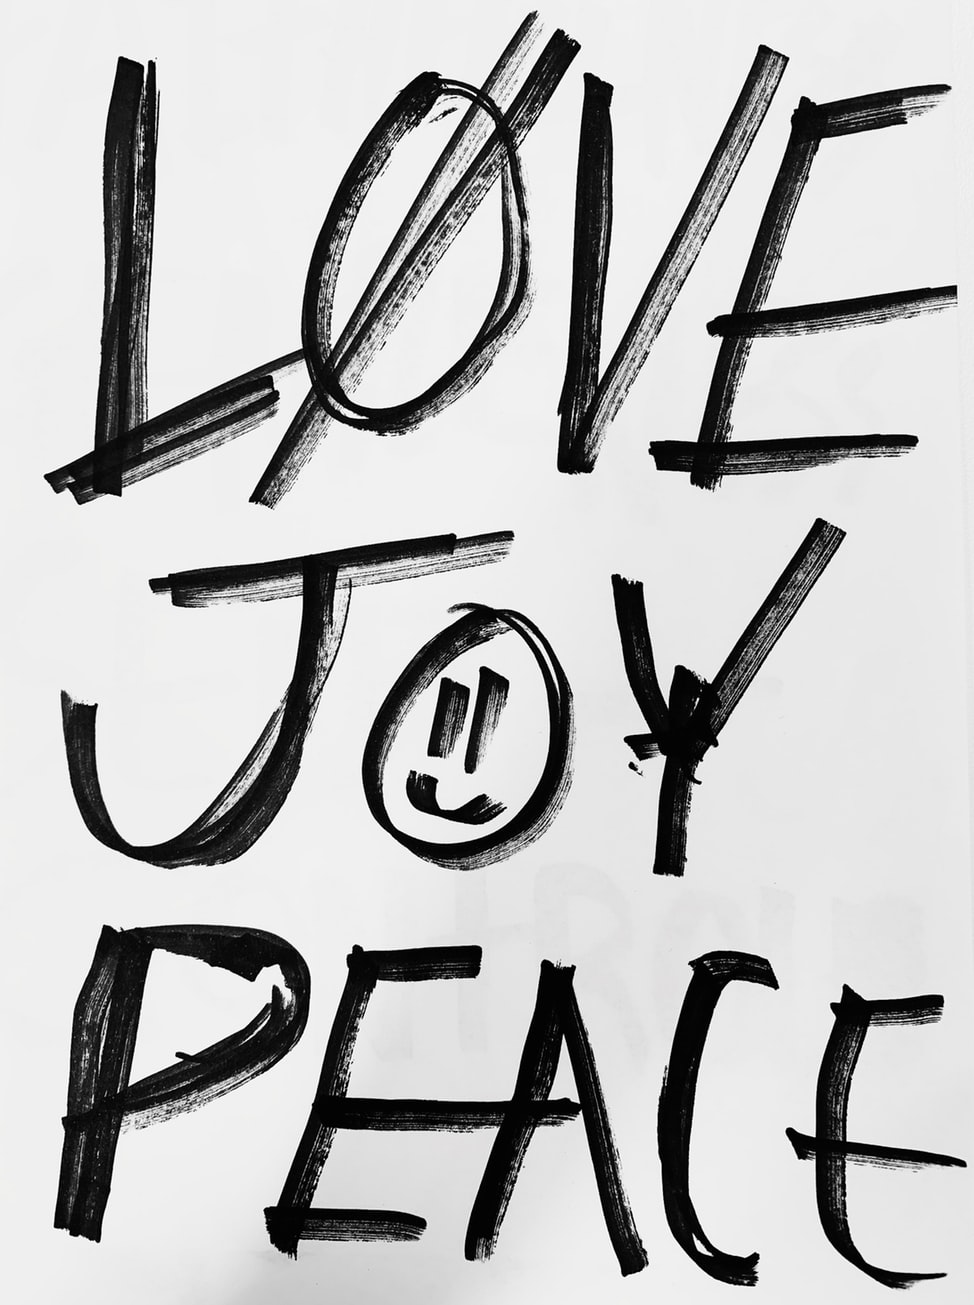 LØVE
JOY
PEACE